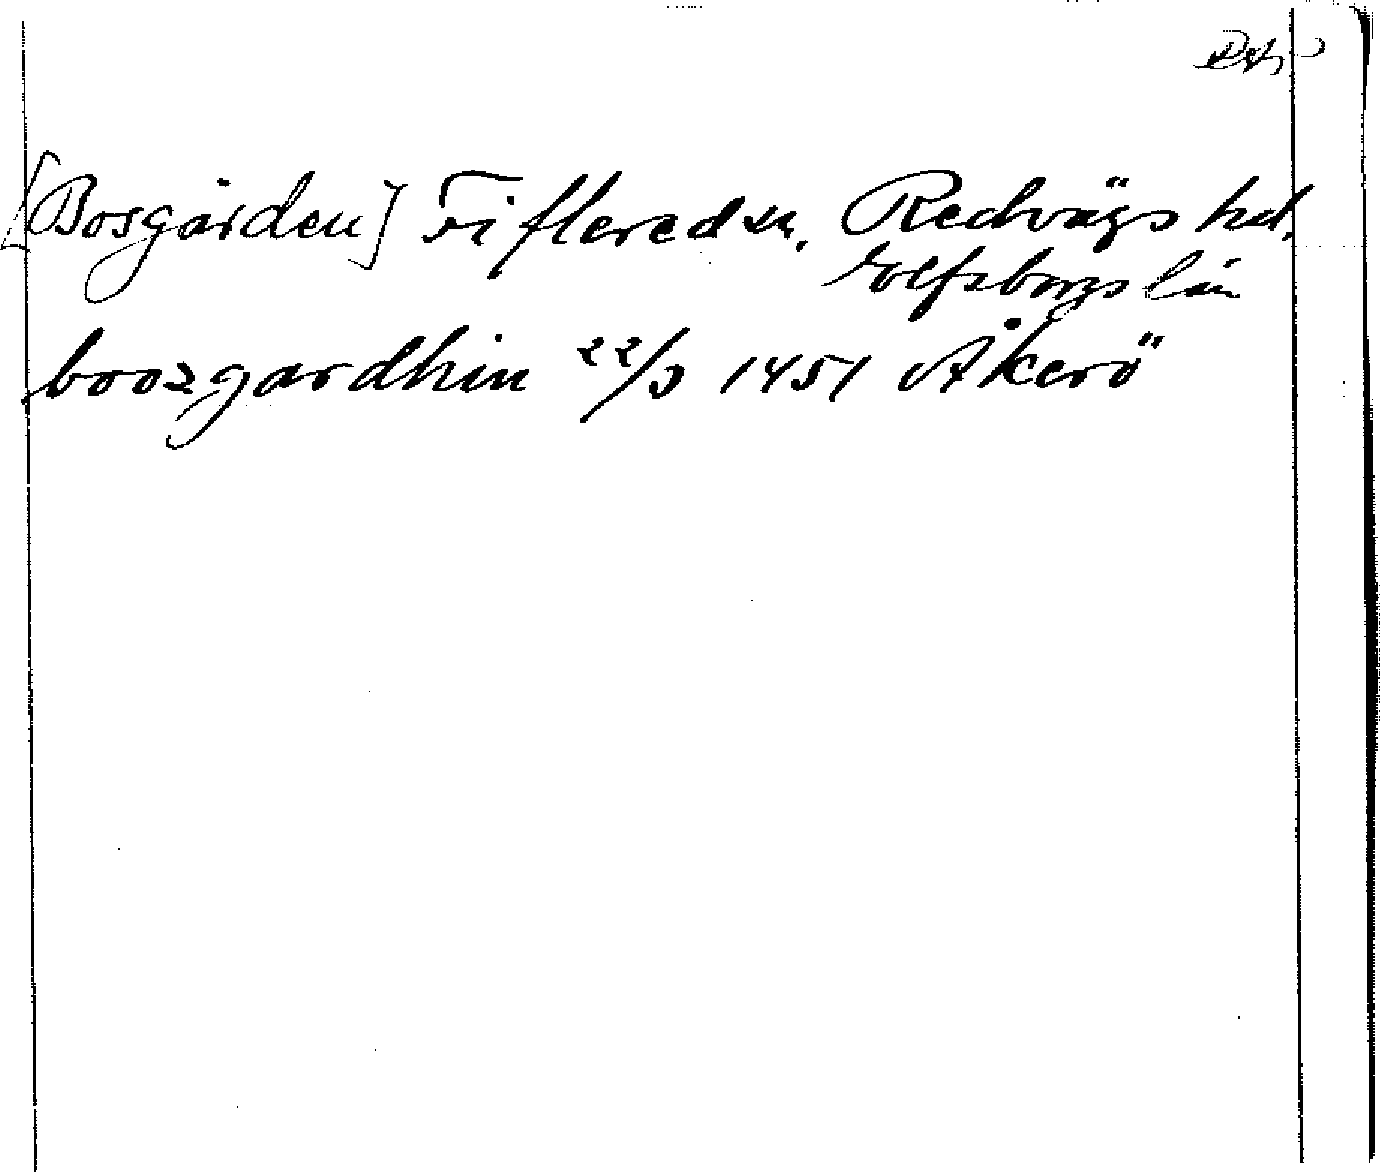 [Bosgården] Fiflered sn, Redvägs hd,
Elfsborgs län
boozgardhin 22/3 1451 Åkerö